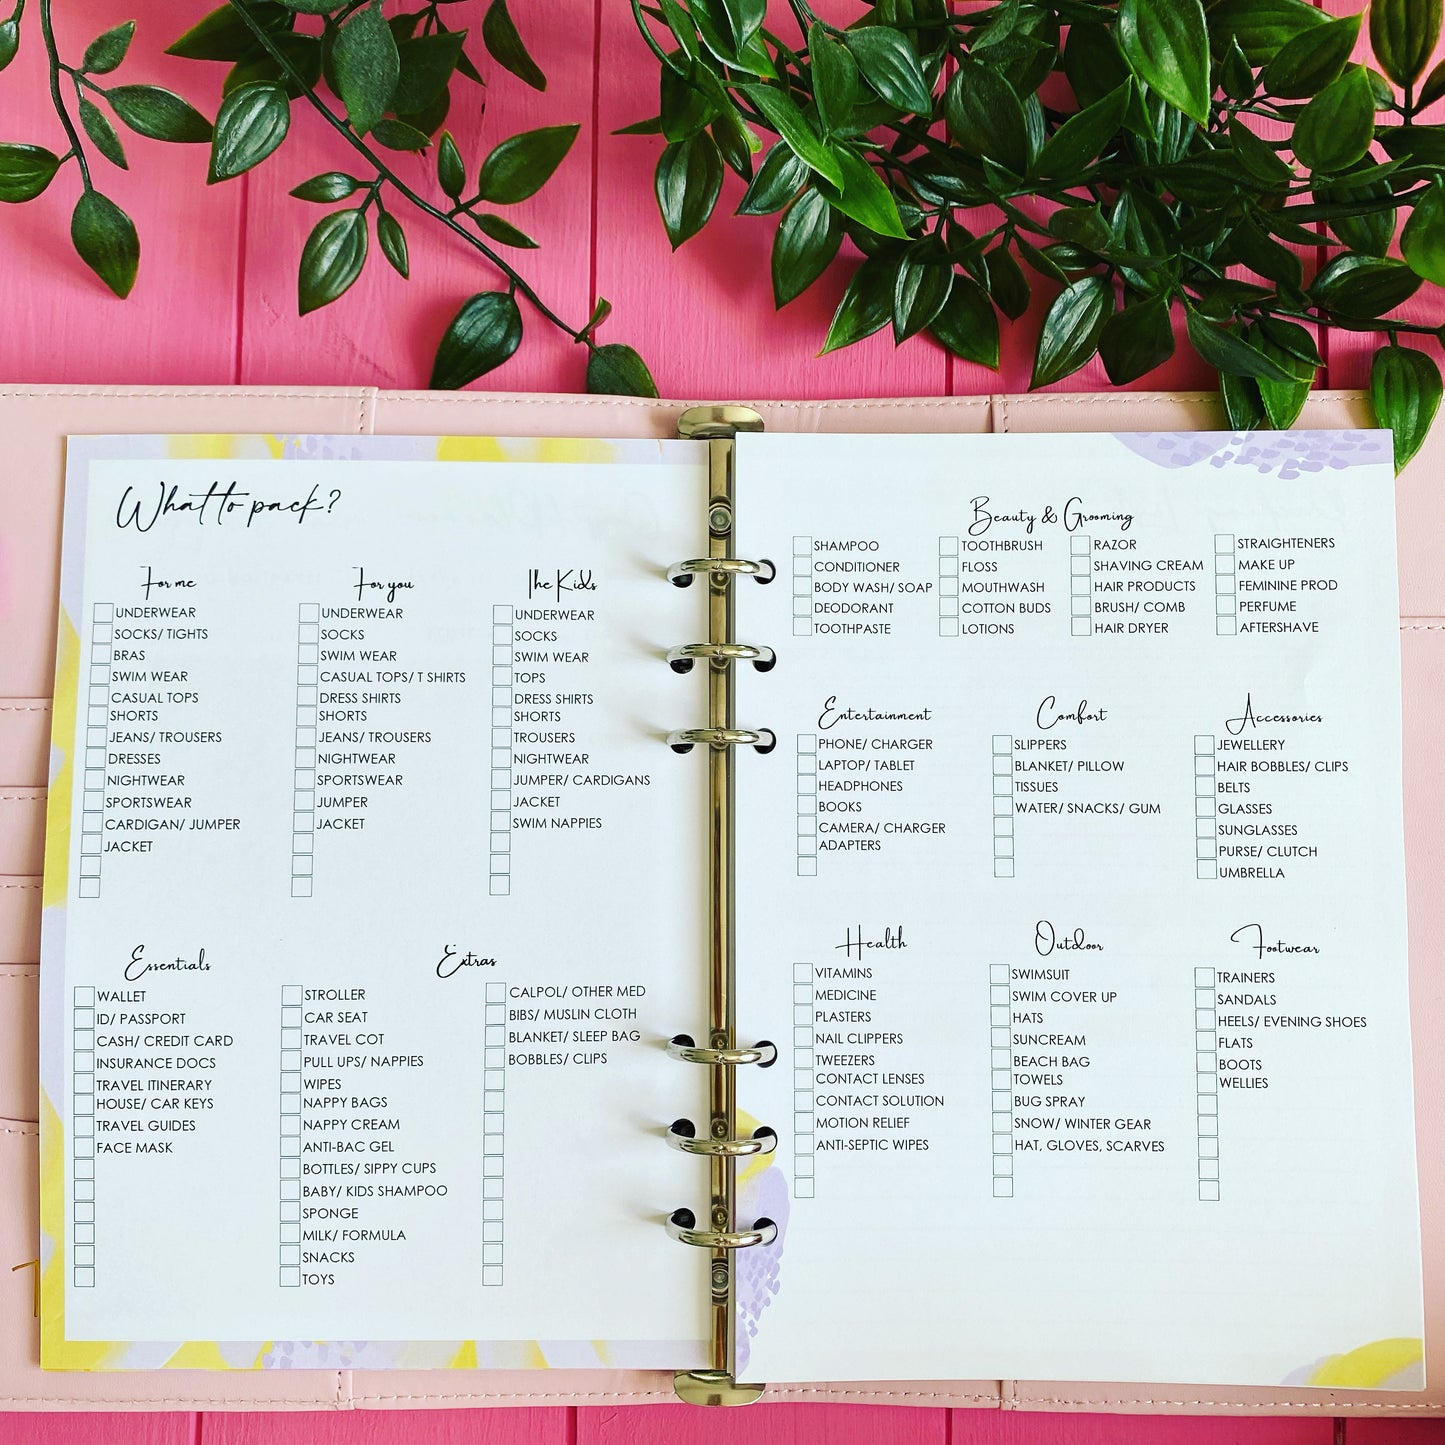 What to pack?
For me
UNDERWEAR
SOCKS/ TIGHTS
BRAS
SWIM WEAR
CASUAL TOPS
SHORTS
JEANS/ TROUSERS
DRESSES
NIGHTWEAR
SPORTSWEAR
CARDIGAN/ JUMPER
JACKET
For you
UNDERWEAR
SOCKS
SWIM WEAR
CASUAL TOPS/ T SHIRTS
DRESS SHIRTS
SHORTS
JEANS/ TROUSERS
NIGHTWEAR
SPORTSWEAR
JUMPER
JACKET
The Kids
UNDERWEAR
SOCKS
SWIM WEAR
TOPS
DRESS SHIRTS
SHORTS
TROUSERS
NIGHTWEAR
JUMPER/ CARDIGANS
JACKET
SWIM NAPPIES
Essentials
WALLET
ID/ PASSPORT
CASH/ CREDIT CARD
INSURANCE DOCS
TRAVEL ITINERARY
HOUSE/ CAR KEYS
TRAVEL GUIDES
FACE MASK
Extras
STROLLER
CAR SEAT
TRAVEL COT
PULL UPS/ NAPPIES
WIPES
NAPPY BAGS
NAPPY CREAM
ANTI-BAC GEL
BOTTLES/ SIPPY CUPS
BABY/ KIDS SHAMPOO
SPONGE
MILK/ FORMULA
SNACKS
TOYS
CALPOL/ OTHER MED
BIBS/ MUSLIN CLOTH
BLANKET/ SLEEP BAG
BOBBLES/ CLIPS
Beauty & Grooming
SHAMPOO
CONDITIONER
BODY WASH/ SOAP
DEODORANT
TOOTHPASTE
TOOTHBRUSH
FLOSS
MOUTHWASH
COTTON BUDS
LOTIONS
RAZOR
SHAVING CREAM
HAIR PRODUCTS
BRUSH/ COMB
HAIR DRYER
STRAIGHTENERS
MAKE UP
FEMININE PROD
PERFUME
AFTERSHAVE
Entertainment
PHONE/ CHARGER
LAPTOP/ TABLET
HEADPHONES
BOOKS
CAMERA/ CHARGER
ADAPTERS
Comfort
SLIPPERS
BLANKET/ PILLOW
TISSUES
WATER/ SNACKS/ GUM
Accessories
JEWELLERY
HAIR BOBBLES/ CLIPS
BELTS
GLASSES
SUNGLASSES
PURSE/ CLUTCH
UMBRELLA
Health
VITAMINS
MEDICINE
PLASTERS
NAIL CLIPPERS
TWEEZERS
CONTACT LENSES
CONTACT SOLUTION
MOTION RELIEF
ANTI-SEPTIC WIPES
Outdoor
SWIMSUIT
SWIM COVER UP
HATS
SUNCREAM
BEACH BAG
TOWELS
BUG SPRAY
SNOW/ WINTER GEAR
HAT, GLOVES, SCARVES
Footwear
TRAINERS
SANDALS
HEELS/ EVENING SHOES
FLATS
BOOTS
WELLIES